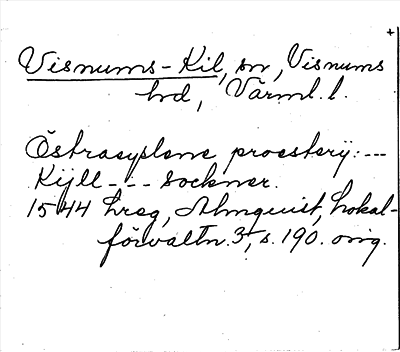 Visnums-Kil, sn, Visnums
hd, Värml. l.
Östrasysslene proesterij: ---
Kijll --- sockner.
1544 hreg, Almquist, Lokal-
förvaltn. 3, s. 190. orig.